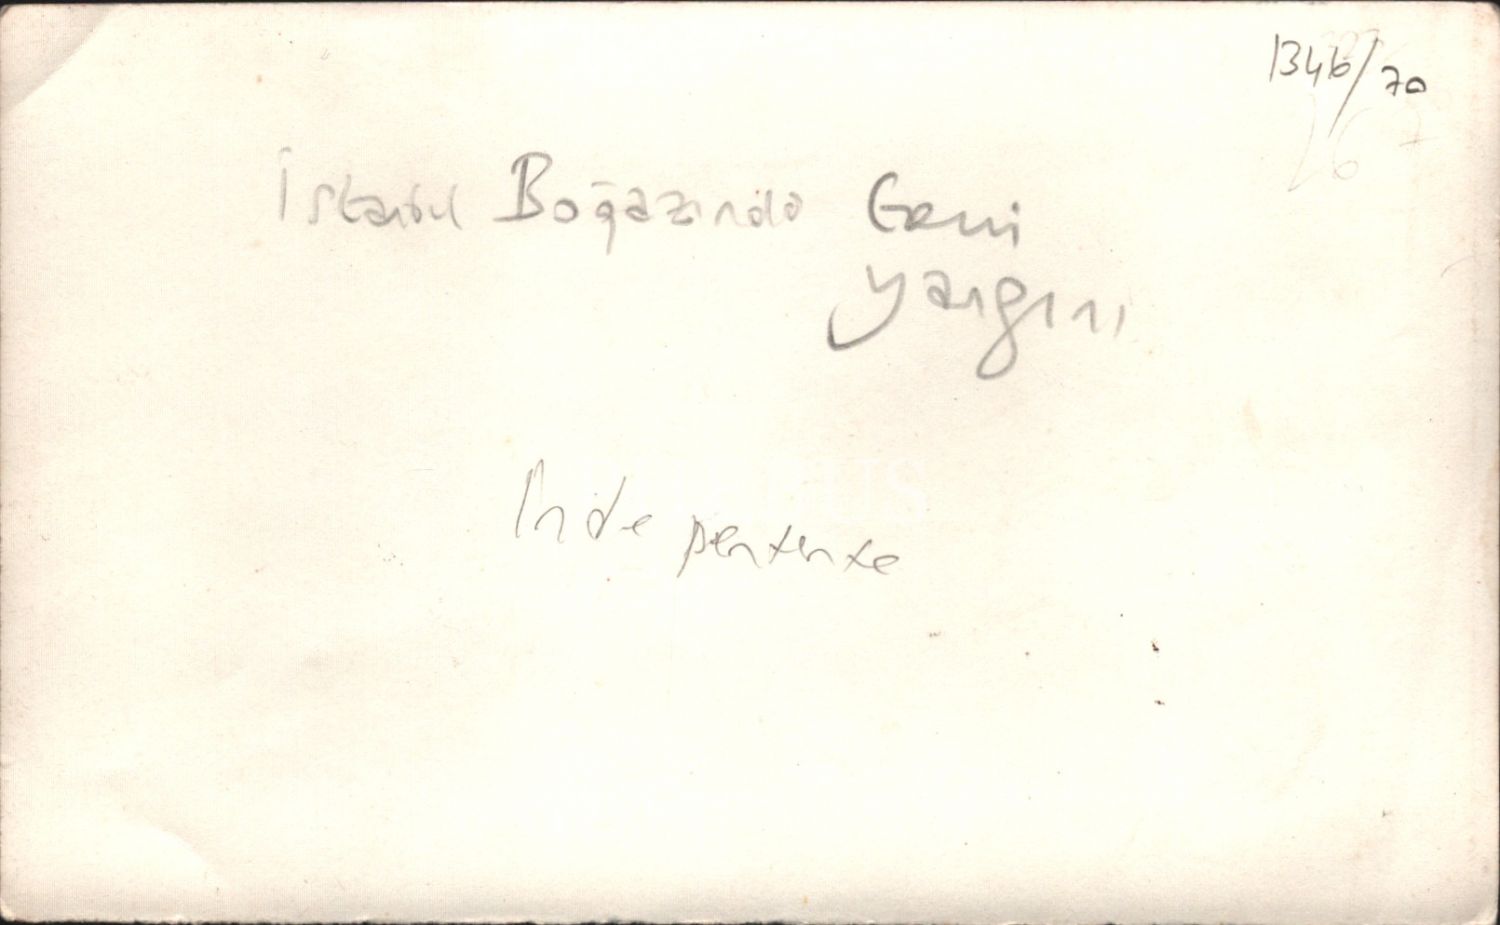 1346/70
İstanbul Boğazında Gemi
yangını
İndepentente